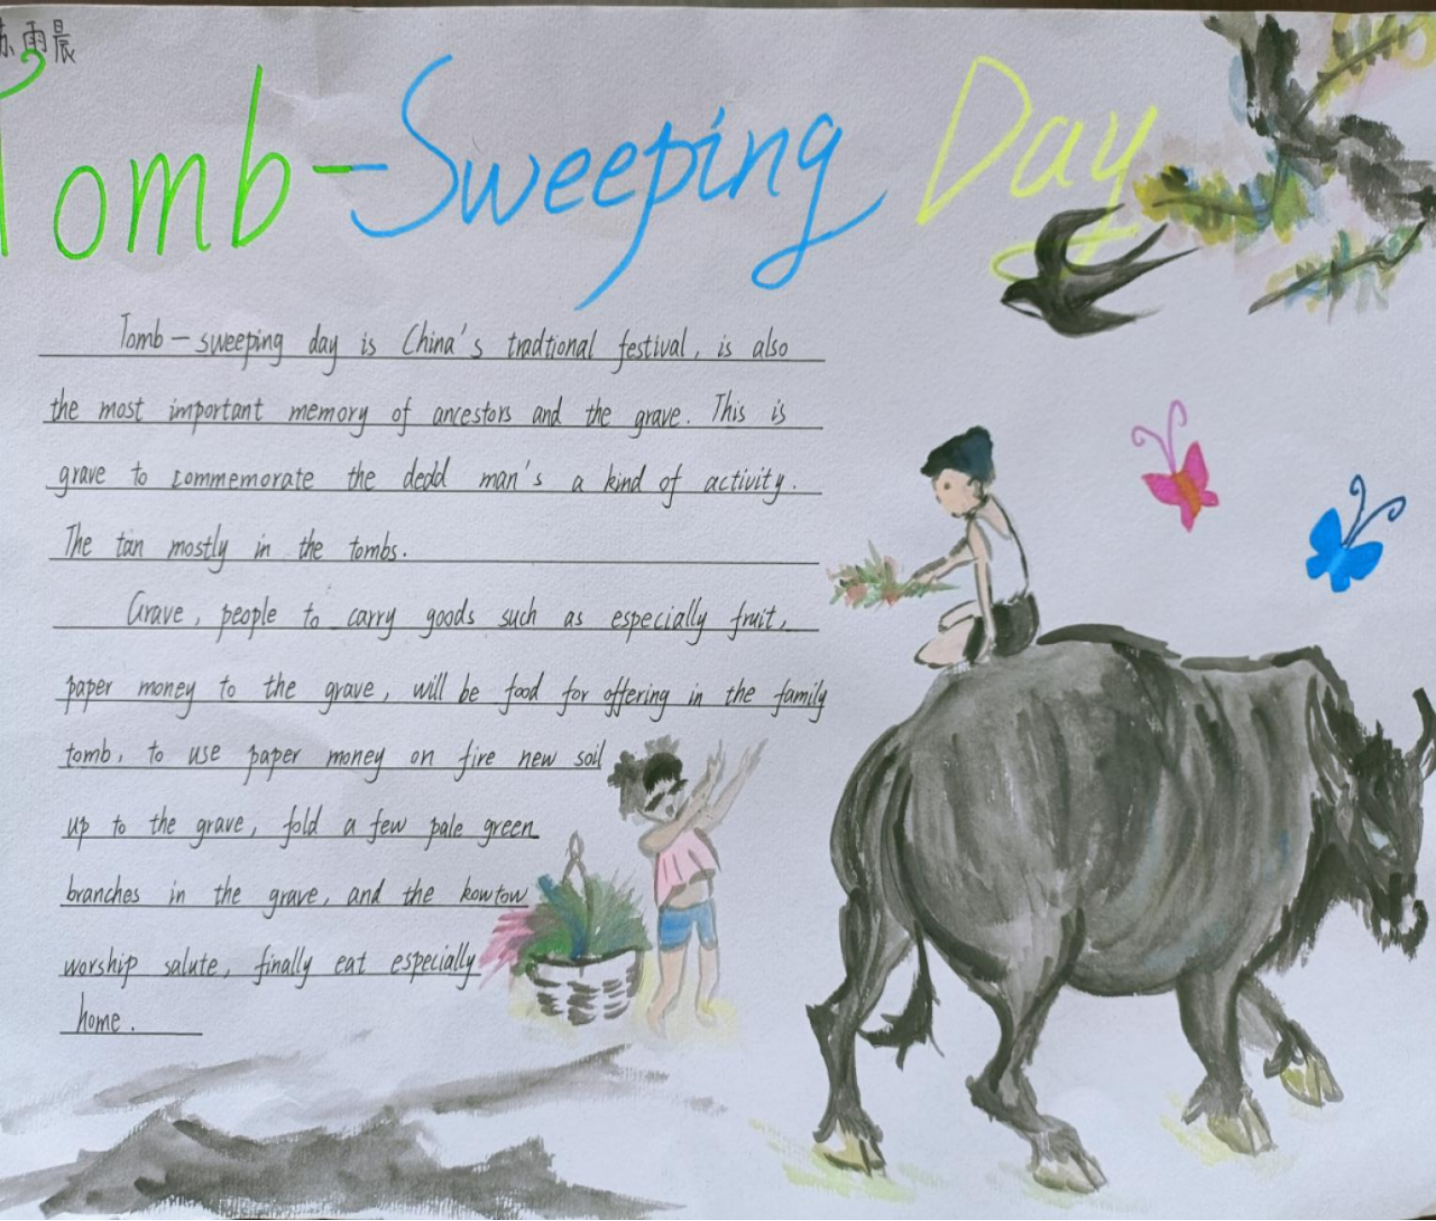 苏雨晨
Tomb-Sweeping Day
Tomb-sweeping day is China's tradtional festival, is also
the most important memory of ancestors and the grave. This is
grave to commemorate the dedd man's a kind of activity.
The tan mostly in the tombs.
Grave, people to carry goods such as especially fruit,
paper money to the grave, will be food for offering in the family
tomb, to use paper money on fire new soil
up to the grave, fold a few pale green
branches in the grave, and the kowtow
worship salute, finally eat especially
home.